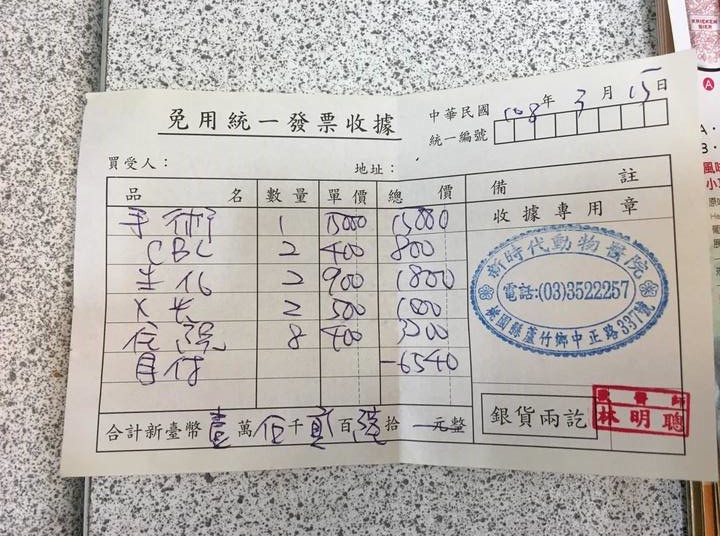 免用統一發票收據
中華民國 108 年 3 月 15 日
統一編號
買受人：
地址：
品名 數量 單價 總價 備註
手術 1 15000 15000
CBC 2 400 800
生化 2 900 1800
X光 2 500 1000
住院 8 400 3200
自付 -6540
合計新臺幣 壹 萬 伍 千 貳 百 陸 拾 元整
收據專用章
新時代動物醫院
電話:(03)3522257
桃園縣蘆竹鄉中正路337號
銀貨兩訖
獸醫師
林明聰
KRIEKEN
BIER
A